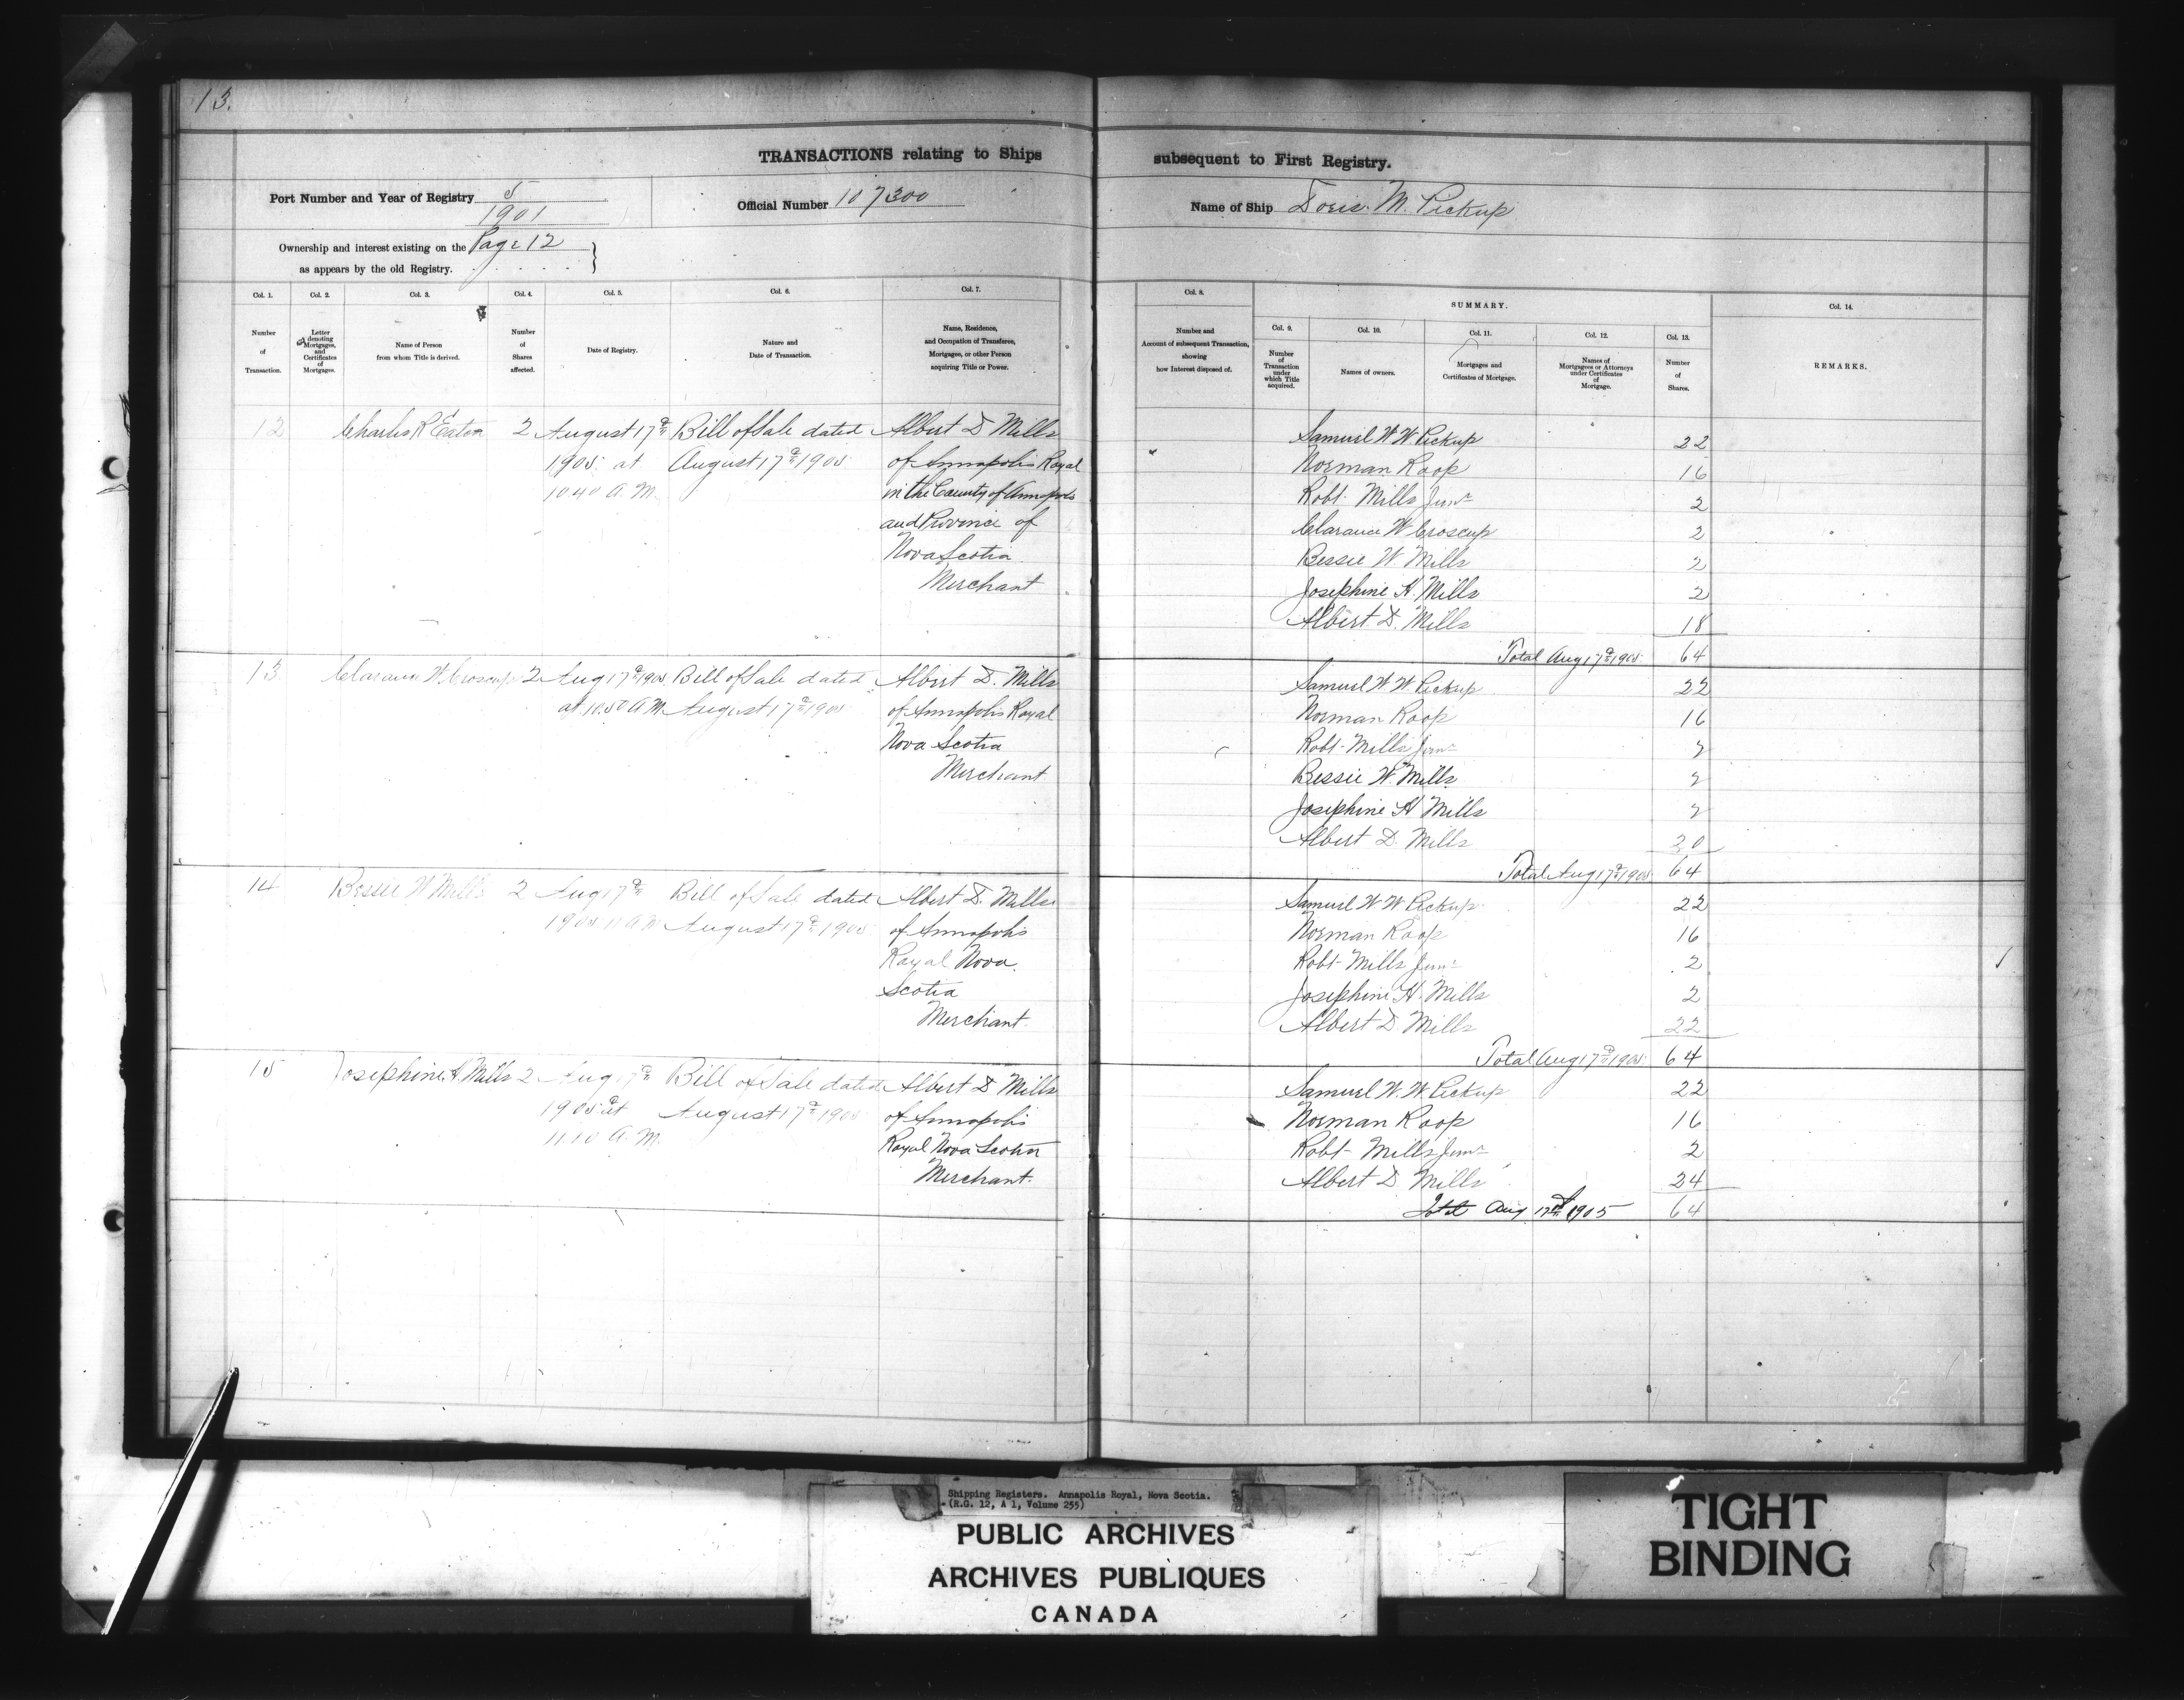 13.
TRANSACTIONS relating to Ships subsequent to First Registry.
Port Number and Year of Registry 5
1901
Official Number 107300
Name of Ship Doris. M. Pickup
Ownership and interest existing on the Page 12
as appears by the old Registry.
Col. 1. Col. 2. Col. 3. Col. 4. Col. 5. Col. 6. Col. 7. Col. 8. SUMMARY. Col. 14.
Number of Transaction.
Letter denoting Mortgages, and Certificates of Mortgages.
Name of Person from whom Title is derived.
Number of Shares affected.
Date of Registry.
Nature and Date of Transaction.
Name, Residence, and Occupation of Transferee, Mortgagee, or other Person acquiring Title or Power.
Number and Account of subsequent Transaction, showing how Interest disposed of.
Col. 9. Col. 10. Col. 11. Col. 12. Col. 13.
Number of Transaction under which Title acquired.
Names of owners.
Mortgages and Certificates of Mortgage.
Names of Mortgagees or Attorneys under Certificates of Mortgage.
Number of Shares.
REMARKS.
12 Charles R Eaton 2 August 17th Bill of Sale dated Albert D Mills
1905. at August 17th 1905 of Annapolis Royal
10 40 A. M. in the County of Annapolis
and Province of
Nova Scotia
Merchant
Samuel W W Pickup 22
Norman Roop 16
Robt. Mills Junr 2
Clarance W Croscup 2
Bessie W. Mills 2
Josephine H. Mills 2
Albert. D. Mills 18
Total Aug 17th 1905. 64
13 Clarance W. Croscup 2 Aug 17th 1905. Bill of Sale dated Albert D. Mills
at 10.50 A M. August 17th 1905 of Annapolis Royal
Nova Scotia
Merchant
Samuel W. W Pickup 22
Norman Roop 16
Robt- Mills Junr 2
Bessie W. Mills 2
Josephine H Mills 2
Albert D. Mills 20
Total Aug 17th 1905. 64
14 Bessie W Mills 2 Aug 17th Bill of Sale dated Albert D. Mills
1905. 11 A M August 17th 1905. of Annapolis
Royal Nova.
Scotia
Merchant.
Samuel W W Pickup 22
Norman Roop 16
Robt- Mills Junr 2
Josephine H. Mills 2
Albert D Mills 22
Total Aug 17th 1905. 64
15 Josephine H. Mills 2 Aug 17th Bill of Sale dated Albert D Mills
1905. at August 17th 1905 of Annapolis
11.10 A. M. Royal Nova Scotia
Merchant.
Samuel W. W Pickup 22
Norman Roop 16
Robt- Mills Junr 2
Albert D Mills 24
Total Aug 17th 1905 64
Shipping Registers. Annapolis Royal, Nova Scotia.
(R.G. 12, A 1, Volume 255)
PUBLIC ARCHIVES
ARCHIVES PUBLIQUES
CANADA
TIGHT
BINDING